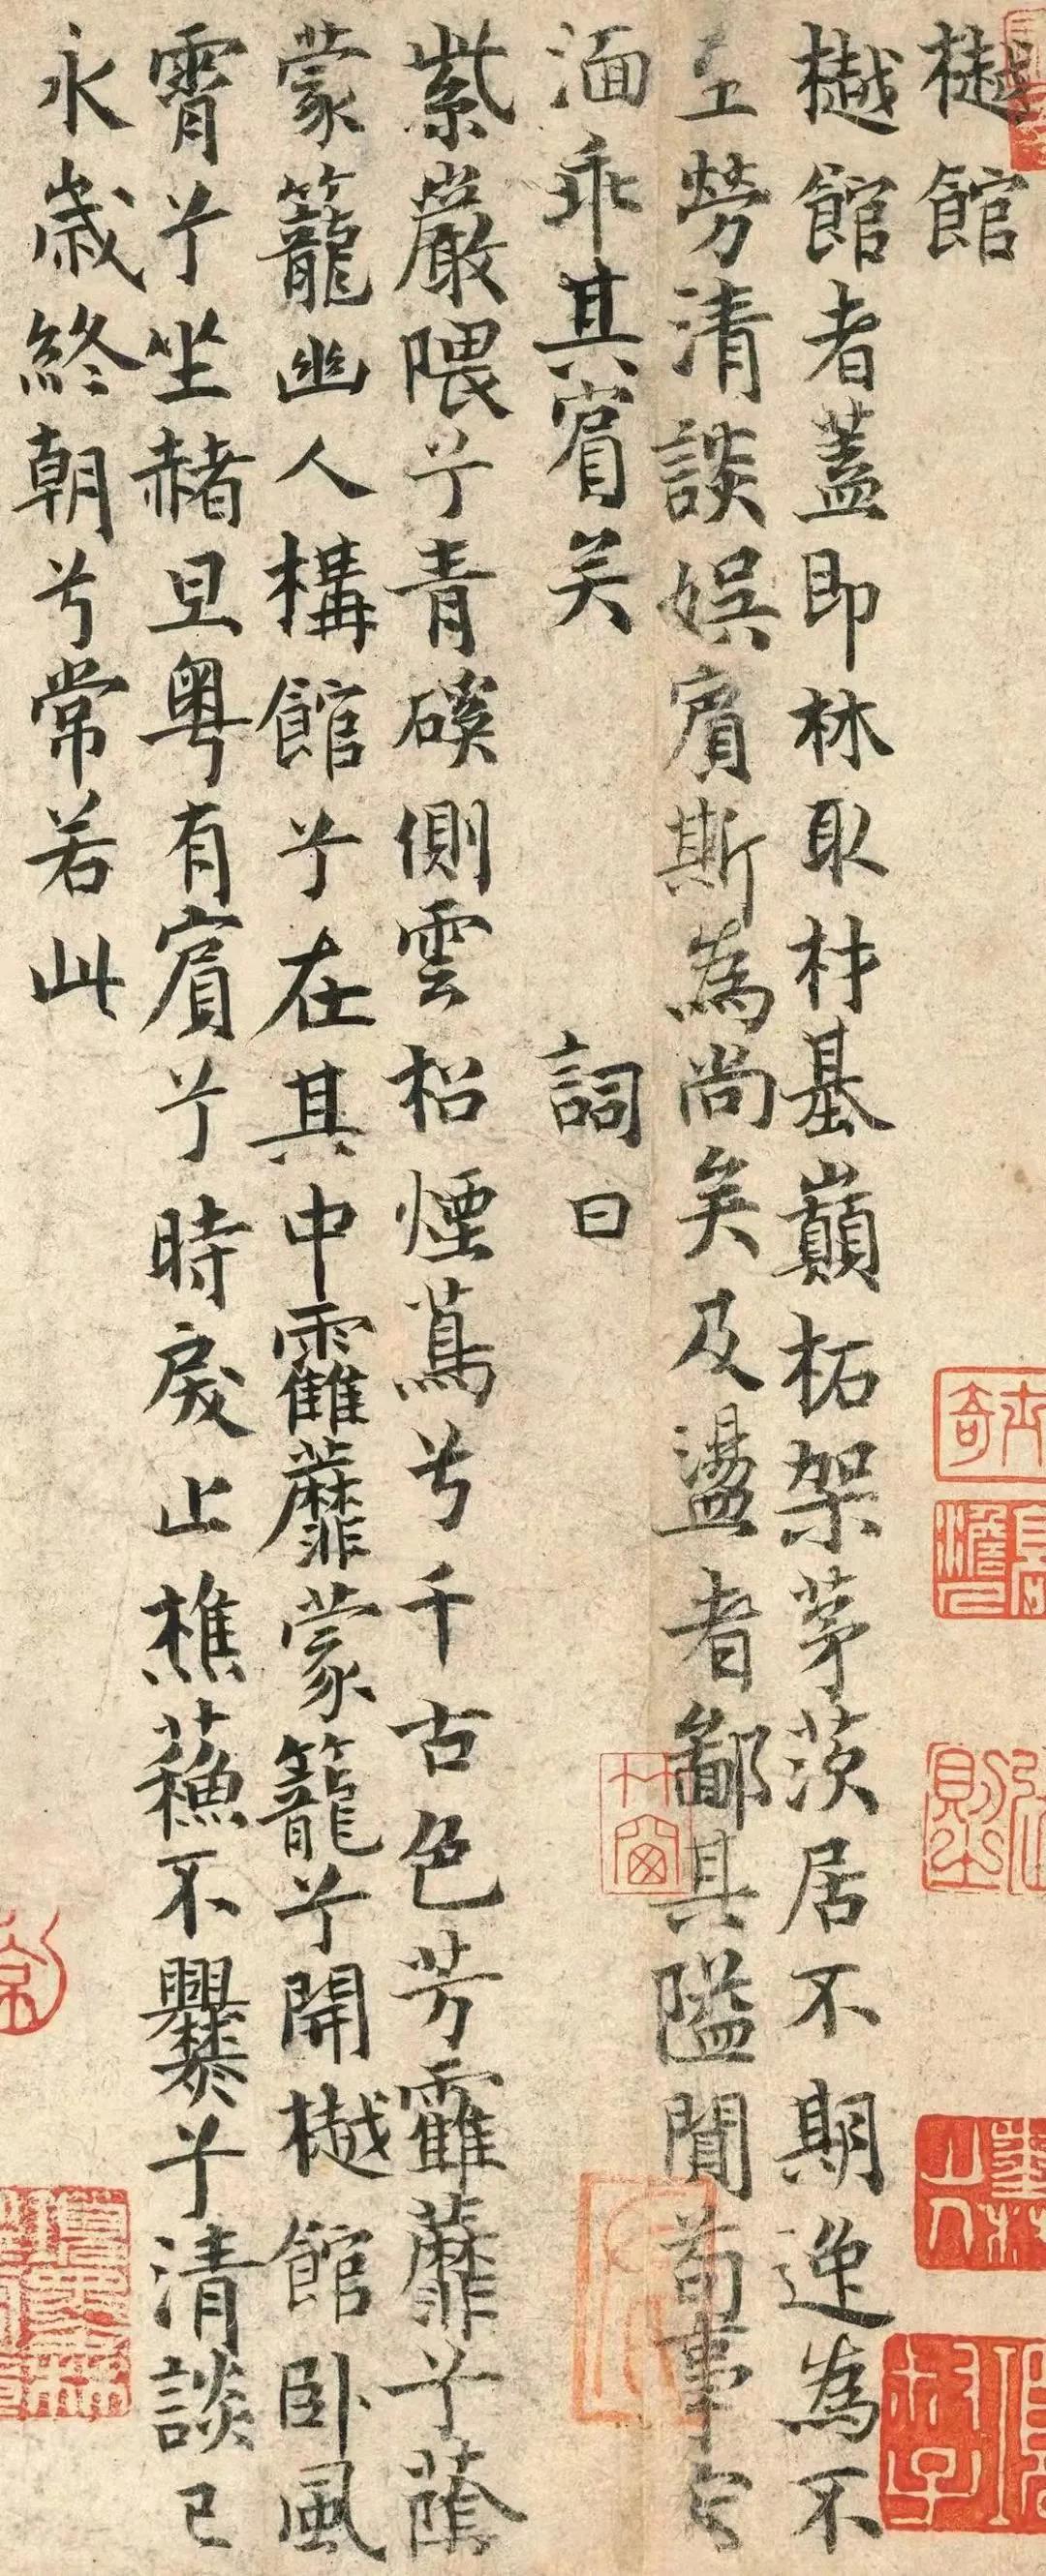 樾館
樾館者蓋即林取材基巔柘架茅茨居不期逸為不
至勞清談娛賓斯為尚矣及盪者鄙其隘閴苟事宏
湎乖其賓矣 詞曰
紫巖隈兮青磎側雲松煙蔦兮千古色芳靃蘼兮蔭
蒙籠幽人構館兮在其中靃蘼蒙籠兮開樾館臥風
霄兮坐赭旦粵有賓兮時戾止樵蘇不爨兮清談已
永歲終朝兮常若此